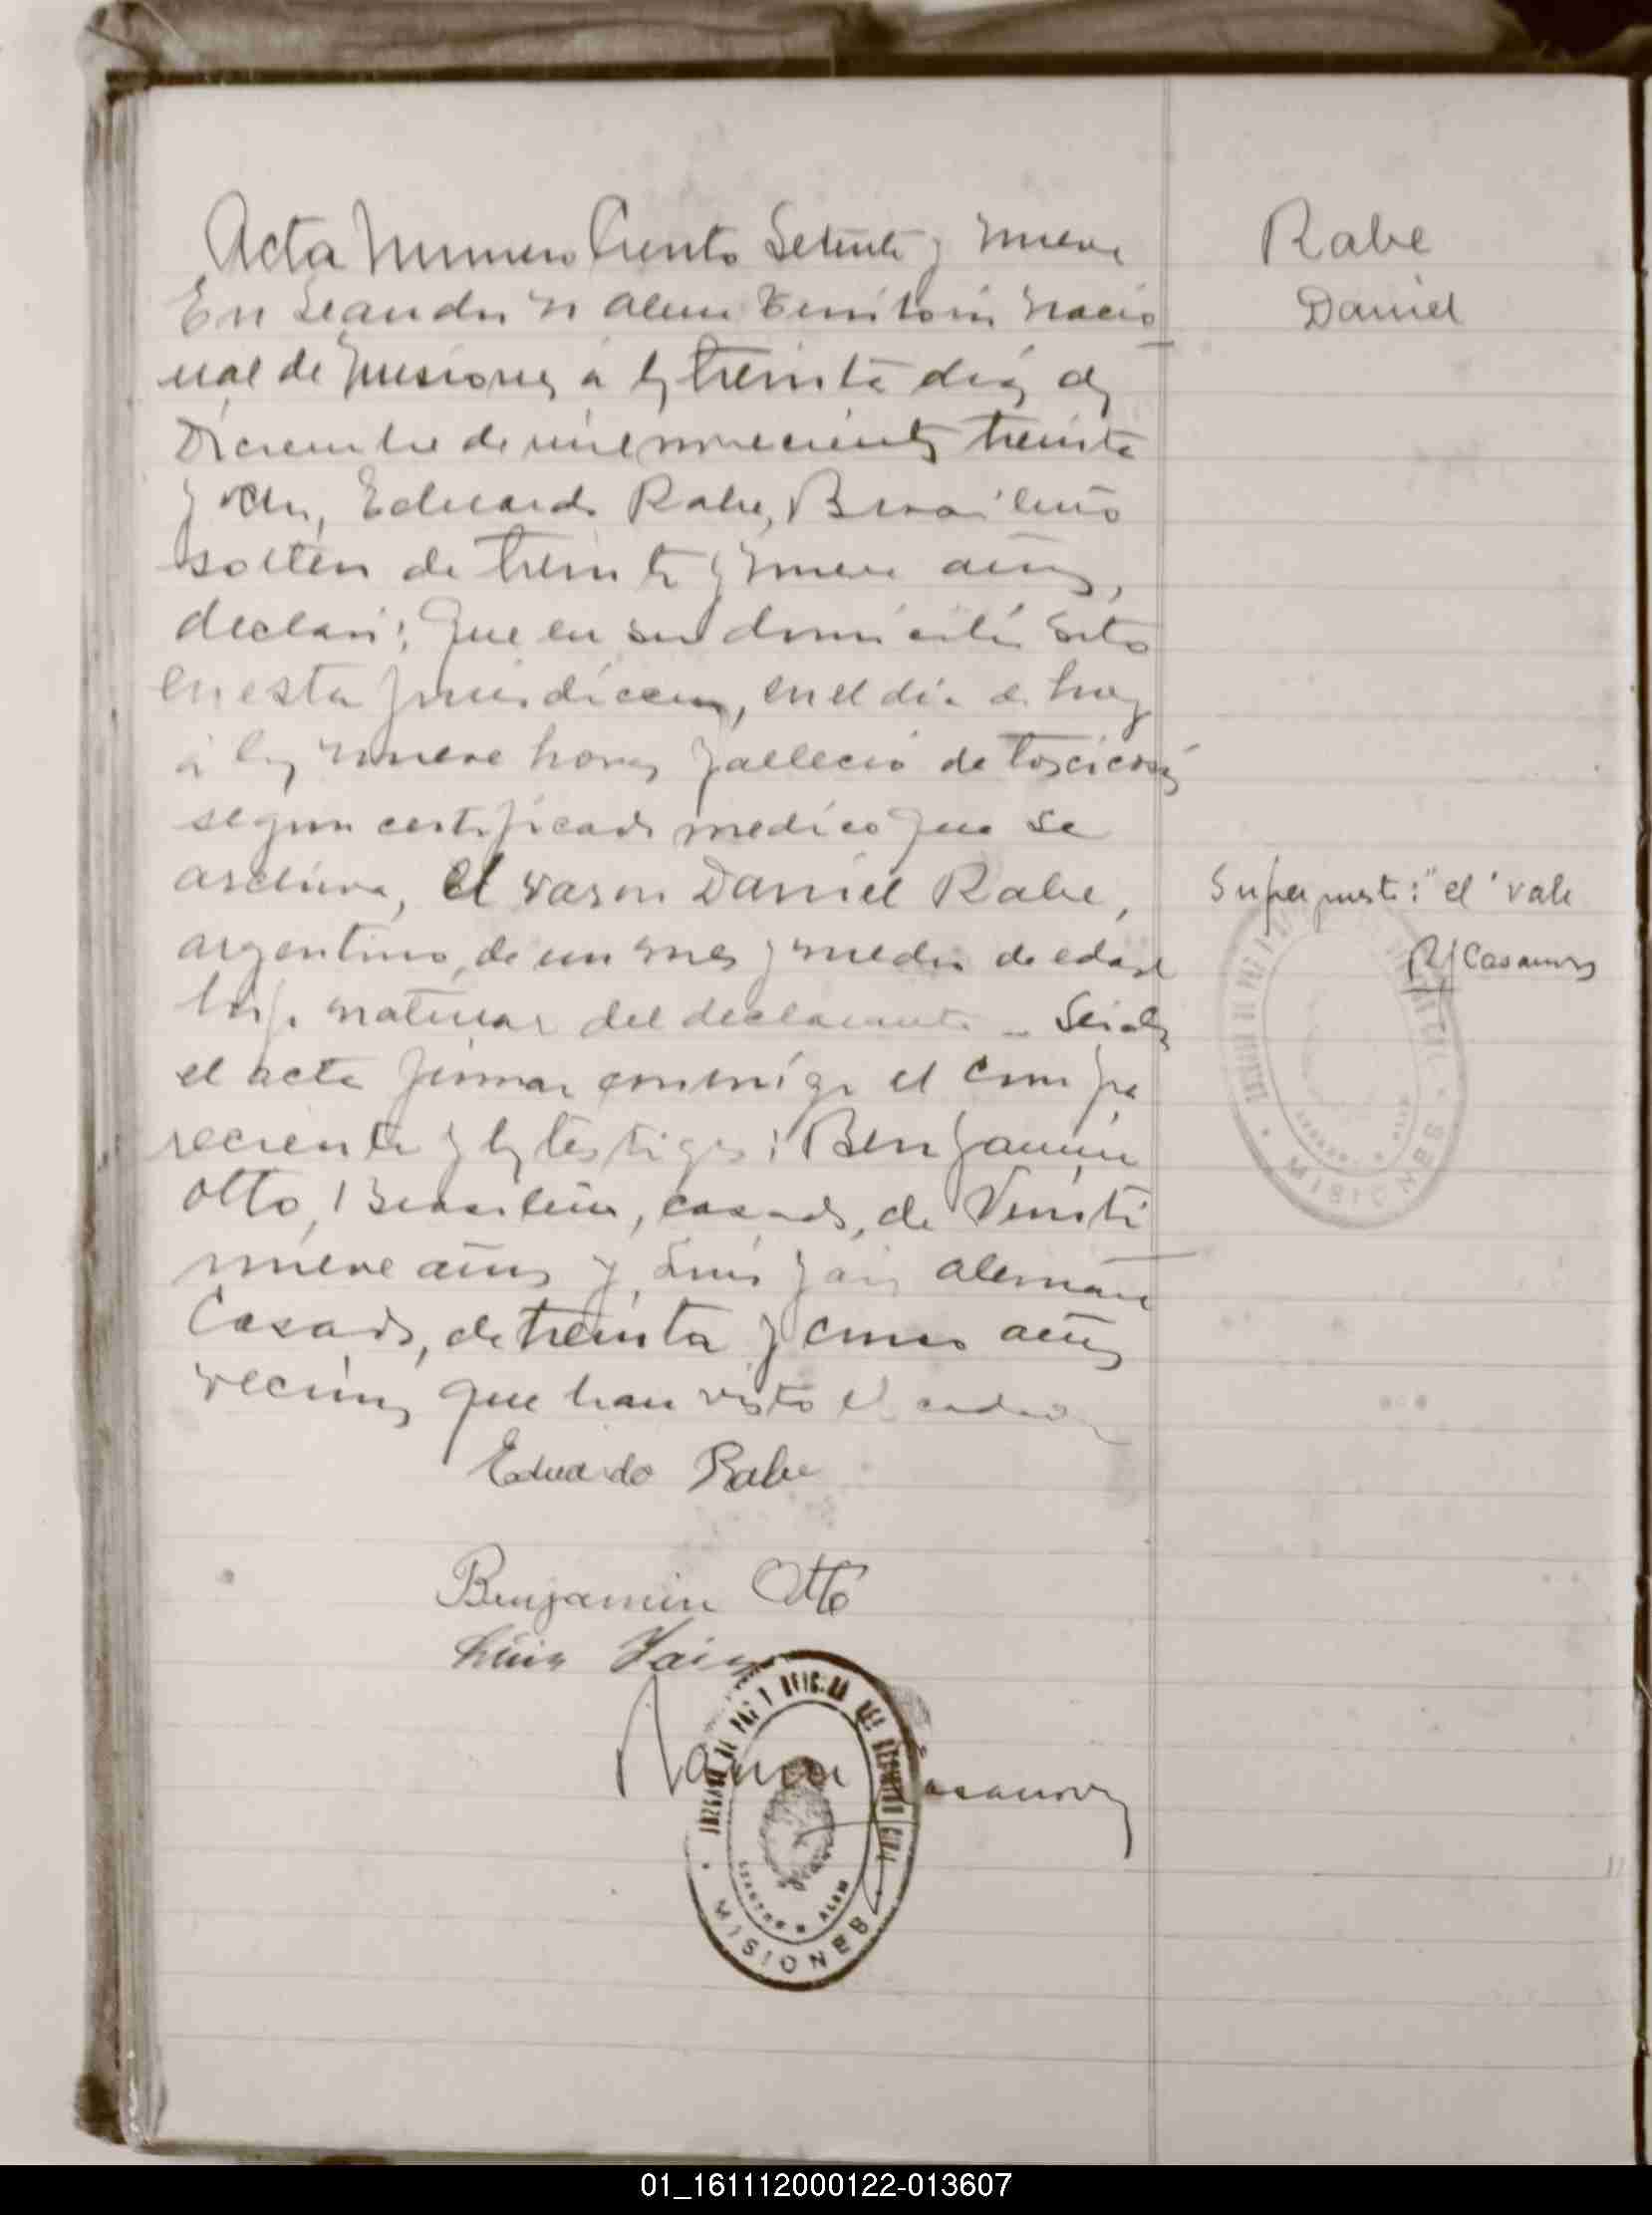 Acta Numero Ciento Setenta y nueve
Rabe
Daniel
En Leandro N Alem Territorio Nacio
nal de Misiones a los treinta dias de
Diciembre de mil novecientos treinta
y ocho, Eduardo Rabe, Brasileño
soltero de treinta y nueve años,
declaró: Que en su domicilio sito
en esta jurisdiccion, en el dia de hoy
á las nueve horas falleció de
segun certificado medico que se
archiva, el varon Daniel Rabe,
Superpuesto: "el" vale
R/Casanova
argentino, de un mes y medio de edad
hijo natural del declarante - Leida
el acta firman conmigo el compa
reciente y los testigos: Benjamin
Otto, Brasileño, casado, de Veinti
nueve años y Luis aleman
Casado, de treinta y cinco años
vecinos que han visto el cadaver
Eduardo Rabe
Benjamin Otto
Luis
Ramon Casanova
JUZGADO DE PAZ Y OFICINA DEL REGISTRO CIVIL
LEANDRO N. ALEM
MISIONES
01_161112000122-013607